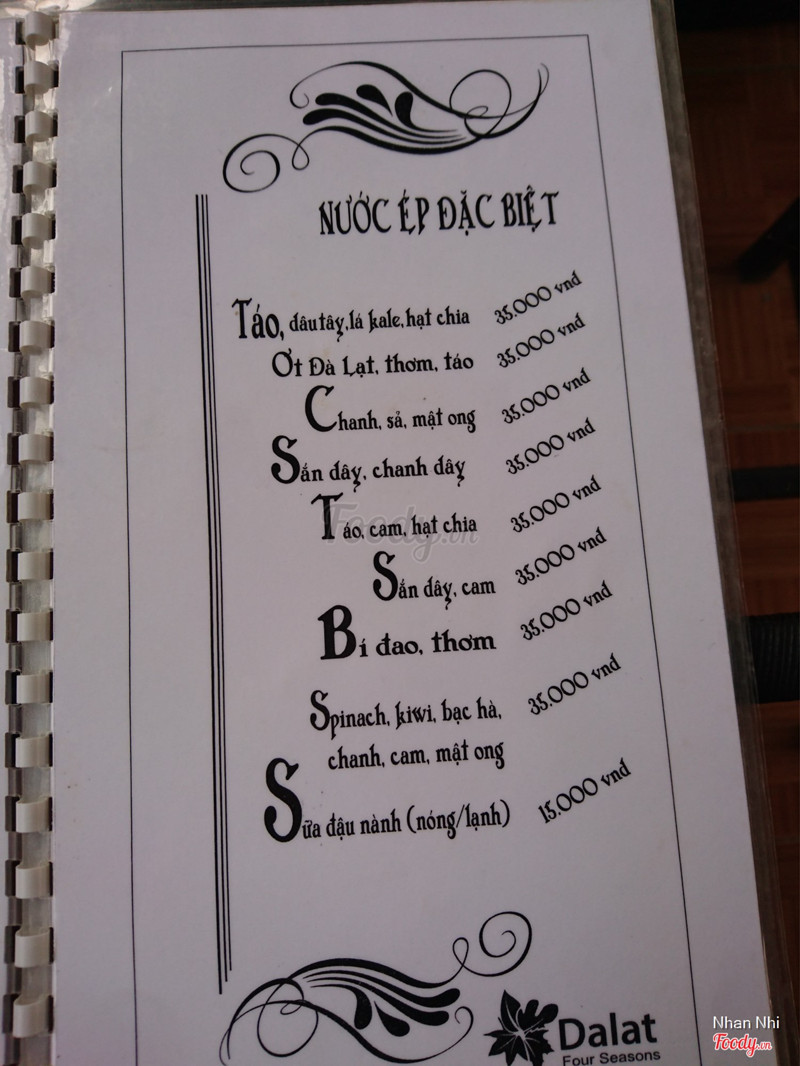 NƯỚC ÉP ĐẶC BIỆT
Táo, dâu tây, lá kale, hạt chia 35.000 vnd
Ớt Đà Lạt, thơm, táo 35.000 vnd
Chanh, sả, mật ong 35.000 vnd
Sắn dây, chanh dây 35.000 vnd
Táo, cam, hạt chia 35.000 vnd
Sắn dây, cam 35.000 vnd
Bí đao, thơm 35.000 vnd
Spinach, kiwi, bạc hà, 35.000 vnd
chanh, cam, mật ong
Sữa đậu nành (nóng/lạnh) 15.000 vnd
Foody.vn
Dalat
Four Seasons
Nhan Nhi
Foody.vn